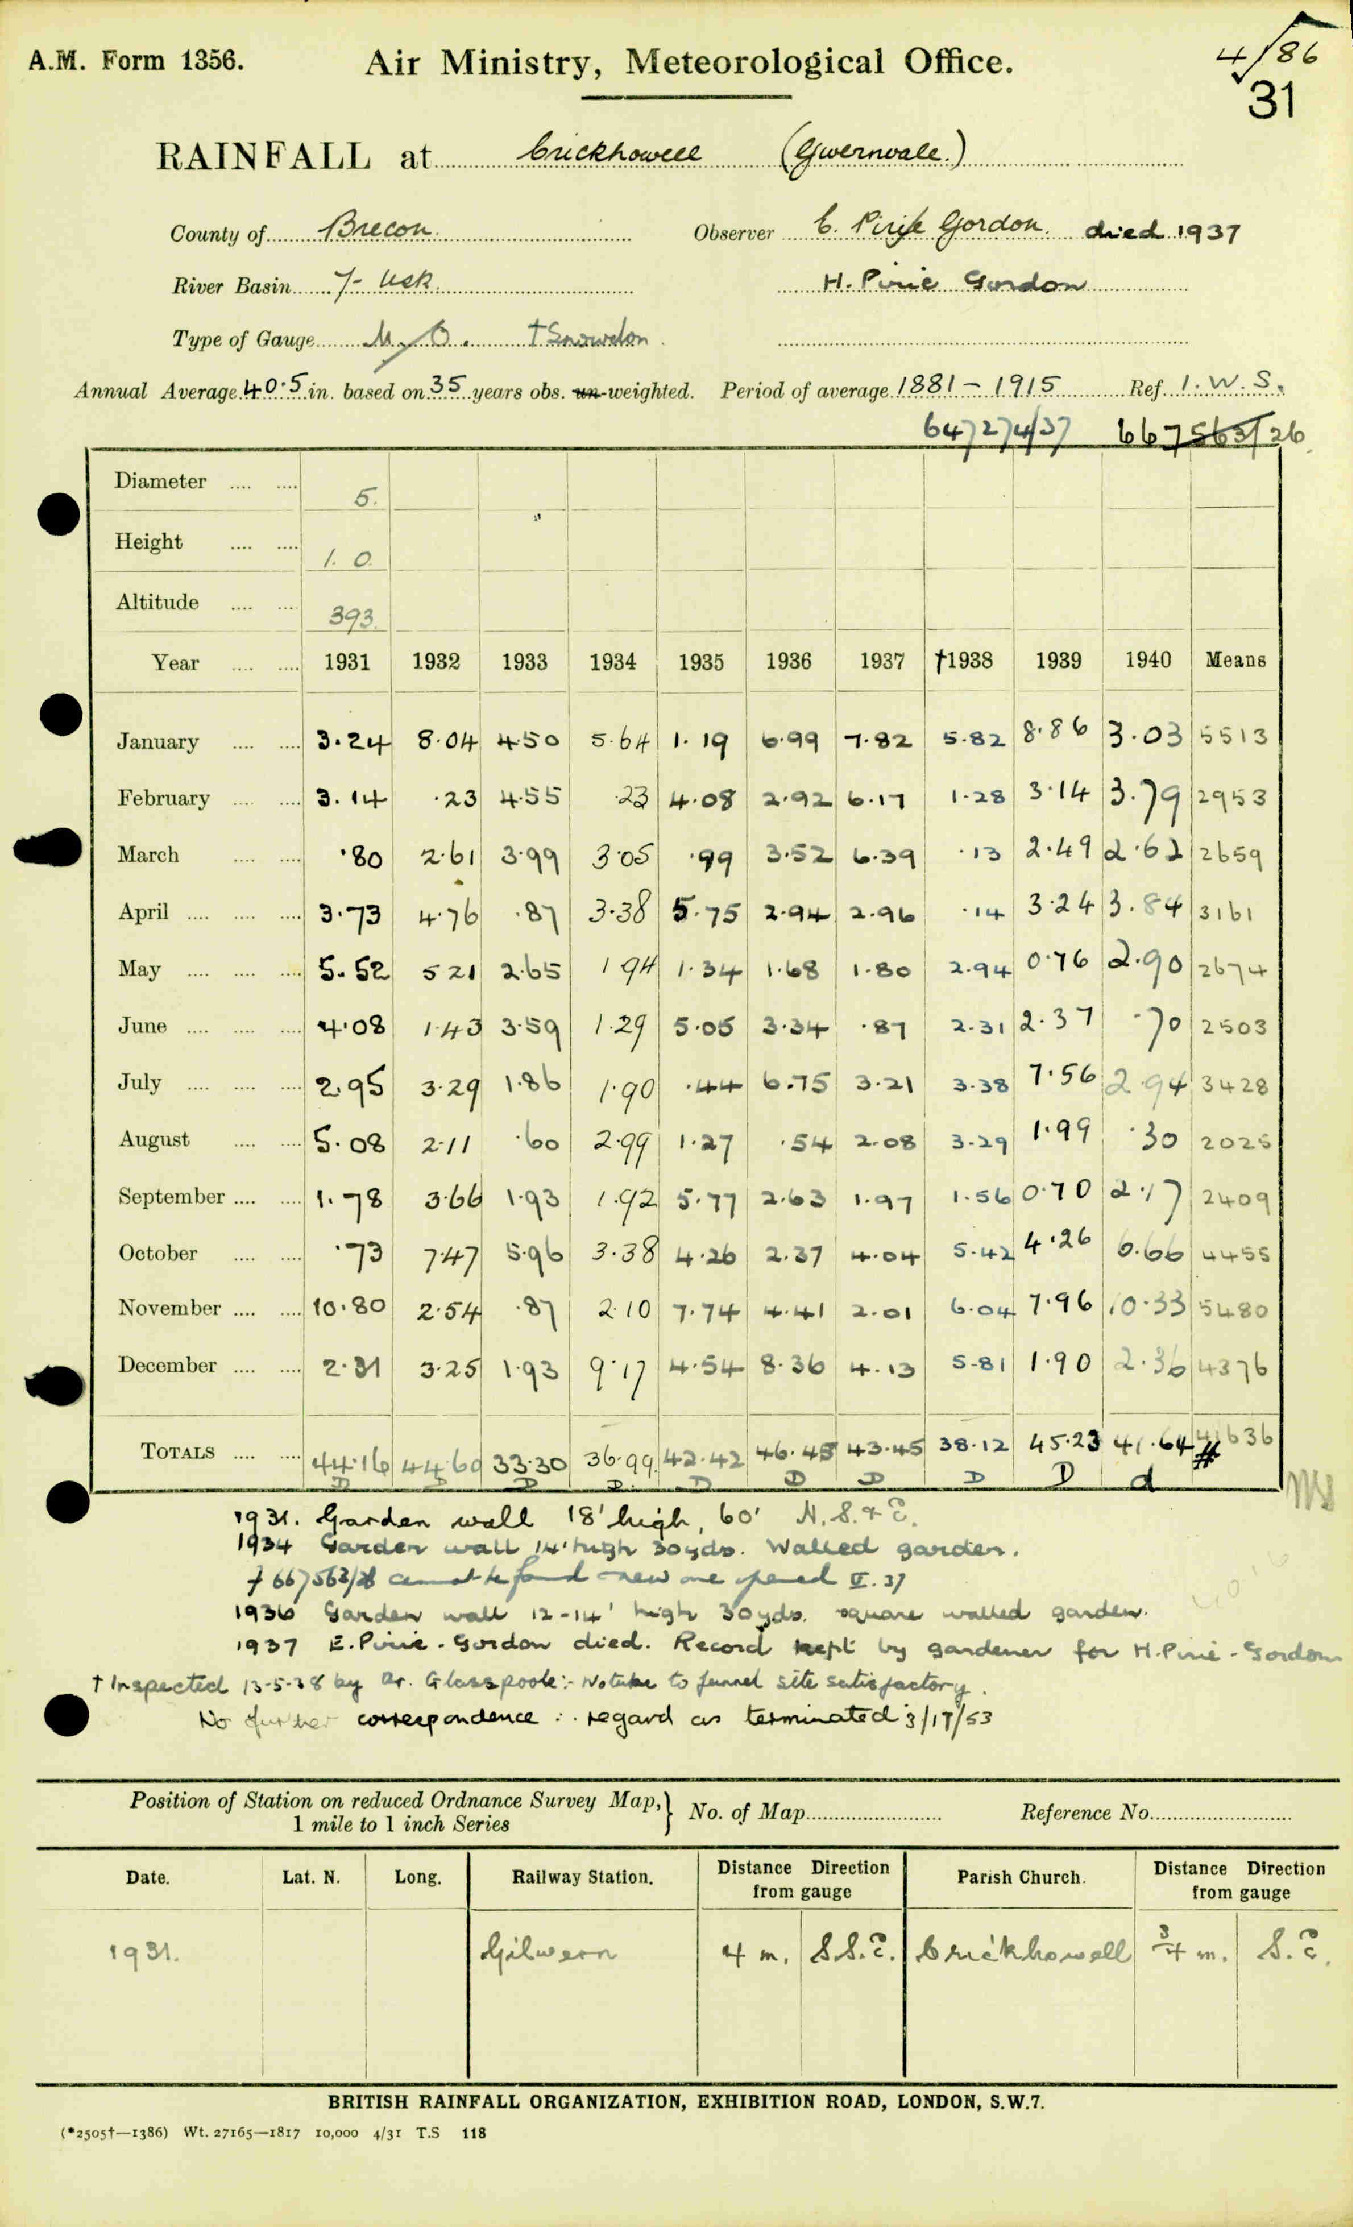 A.M. Form 1356. Air Ministry, Meteorological Office. 4/86
31
RAINFALL at Crickhowell (Gwernvale.)
County of Brecon. Observer C. Pirie Gordon. died 1937
River Basin 7- Usk. H. Pirie Gordon
Type of Gauge M.O. †Snowdon.
Annual Average 40.5 in. based on 35 years obs. un-weighted. Period of average 1881-1915 Ref. I.W.S.
647274/37 667563/26
Diameter 5.
Height 1. 0
Altitude 393.
Year 1931 1932 1933 1934 1935 1936 1937 †1938 1939 1940 Means
January 3.24 8.04 4.50 5.64 1.19 6.99 7.82 5.82 8.86 3.03 5513
February 3.14 .23 4.55 .23 4.08 2.92 6.17 1.28 3.14 3.79 2953
March .80 2.61 3.99 3.05 .99 3.52 6.39 .13 2.49 2.62 2659
April 3.73 4.76 .87 3.38 5.75 2.94 2.96 .14 3.24 3.84 3161
May 5.52 5 21 2.65 1 94 1.34 1.68 1.80 2.94 0.76 2.90 2674
June 4.08 1.43 3.59 1.29 5.05 3.34 .87 2.31 2.37 .70 2503
July 2.95 3.29 1.86 1.90 .44 6.75 3.21 3.38 7.56 2.94 3428
August 5.08 2.11 .60 2.99 1.27 .54 2.08 3.29 1.99 .30 2025
September 1.78 3.66 1.93 1.92 5.77 2.63 1.97 1.56 0.70 2.17 2409
October .73 7.47 5.96 3.38 4.26 2.37 4.04 5.42 4.26 6.66 4455
November 10.80 2.54 .87 2.10 7.74 4.41 2.01 6.04 7.96 10.33 5480
December 2.31 3.25 1.93 9.17 4.54 8.36 4.13 5.81 1.90 2.36 4376
TOTALS 44.16 44.60 33.30 36.99 42.42 46.45 43.45 38.12 45.23 41.64 41636
D D D D. D D D D D d #
1931. Garden wall 18' high, 60' N.S.& E.
1934 Garden wall 14' high 30yds. Walled garden.
† 667563/26 cannot be found - new one opened V. 37
1936 Garden wall 12-14' high 30yds. square walled garden.
1937 E. Pirie-Gordon died. Record kept by gardener for H. Pirie-Gordon
† Inspected 13-5-38 by Dr. Glasspoole:- No tube to funnel site satisfactory.
No further correspondence ∴ regard as terminated 3/17/53
Position of Station on reduced Ordnance Survey Map, } No. of Map Reference No.
1 mile to 1 inch Series
Date. Lat. N. Long. Railway Station. Distance Direction from gauge Parish Church. Distance Direction from gauge
1931. Gilwern 4 m. S.S.E. Crickhowell 3/4 m. S.E.
BRITISH RAINFALL ORGANIZATION, EXHIBITION ROAD, LONDON, S.W.7.
(*2505†—1386) Wt. 27165—1817 10,000 4/31 T.S 118